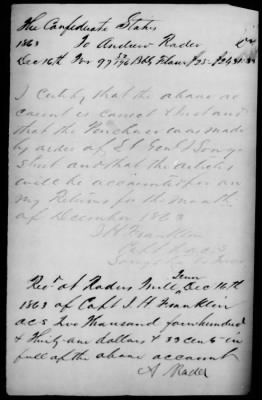 The Confederate States
1863 To Andrew Rader Dr
Dec 16th For 97 Bbls Flour $25
I certify that the above ac
count is correct & just and
that the Purchase was made
by order of Lt Genl Longs
treet and that the articles
will be accounted for on
my Returns for the month
of December 1863
J H Franklin
Capt & acs
Recd at Raders Mill Tenn Dec 16th
1863 of Capt J H Franklin
acs Two Thousand four hundred
& Thirty-one dollars & 33 cents in
full of the above account
A Rader